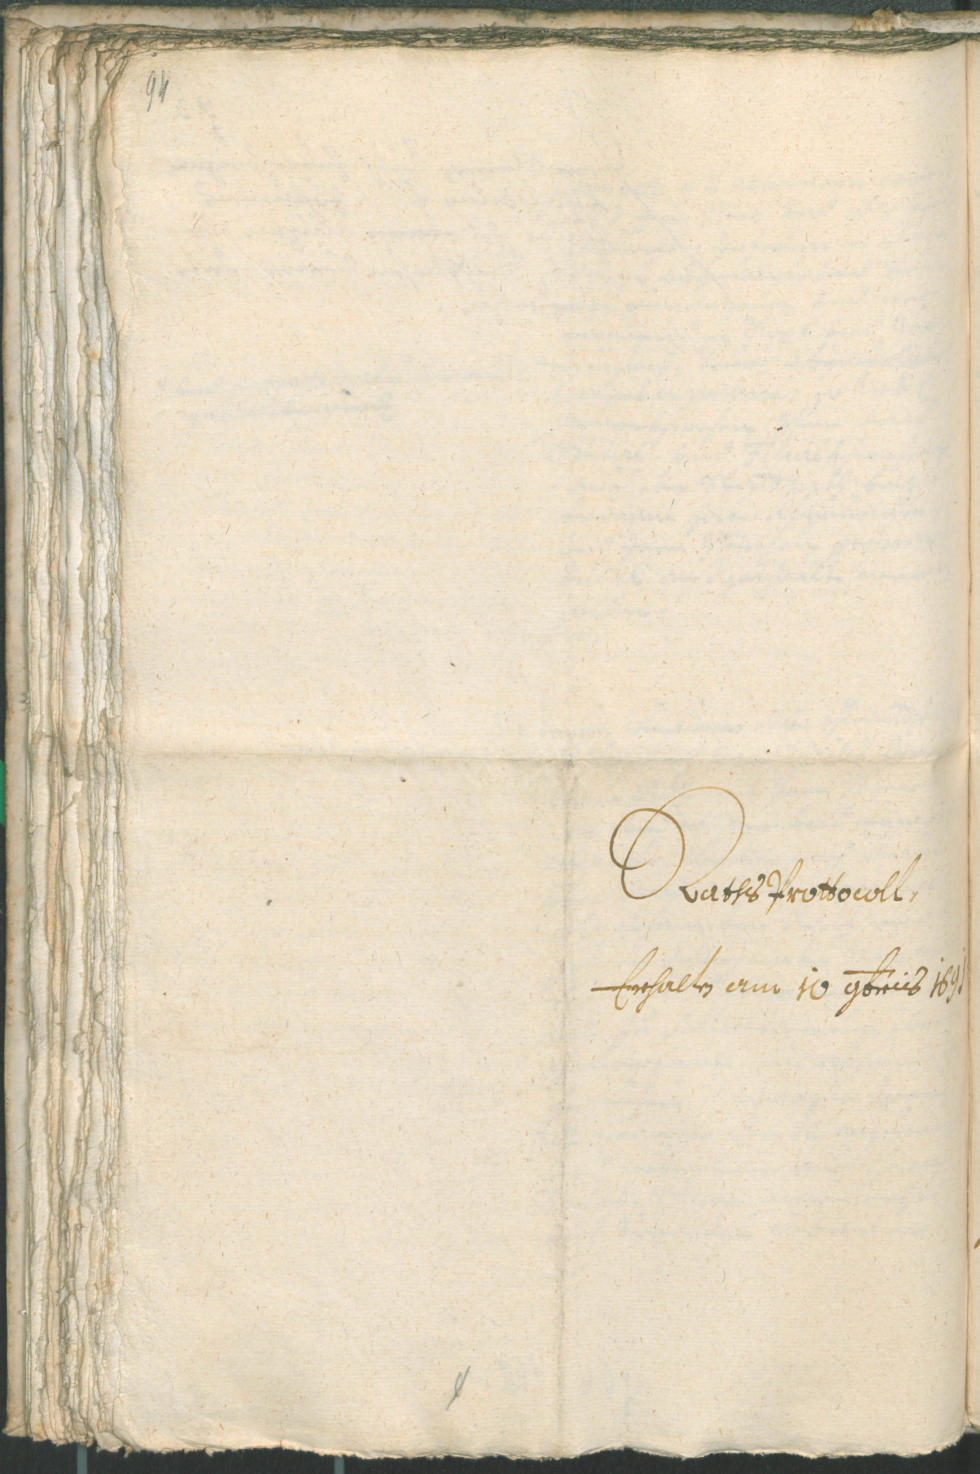 94
Raths Prottocoll,
Erhalten am 10 9bris 1691